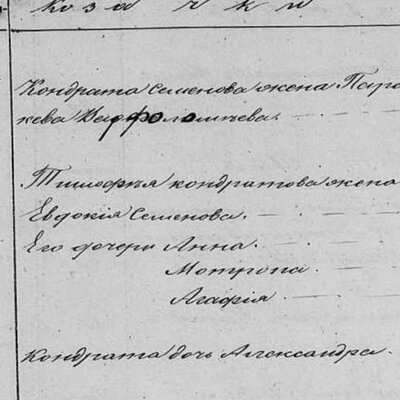 козачки
Кондрата Семенова жена Пара
кева Варфоломѣева.
Тимофѣя Кондратова жена
Евдокія Семенова.
Его дочери Анна.
Мотрона.
Агафія.
Кондрата дочь Александра.